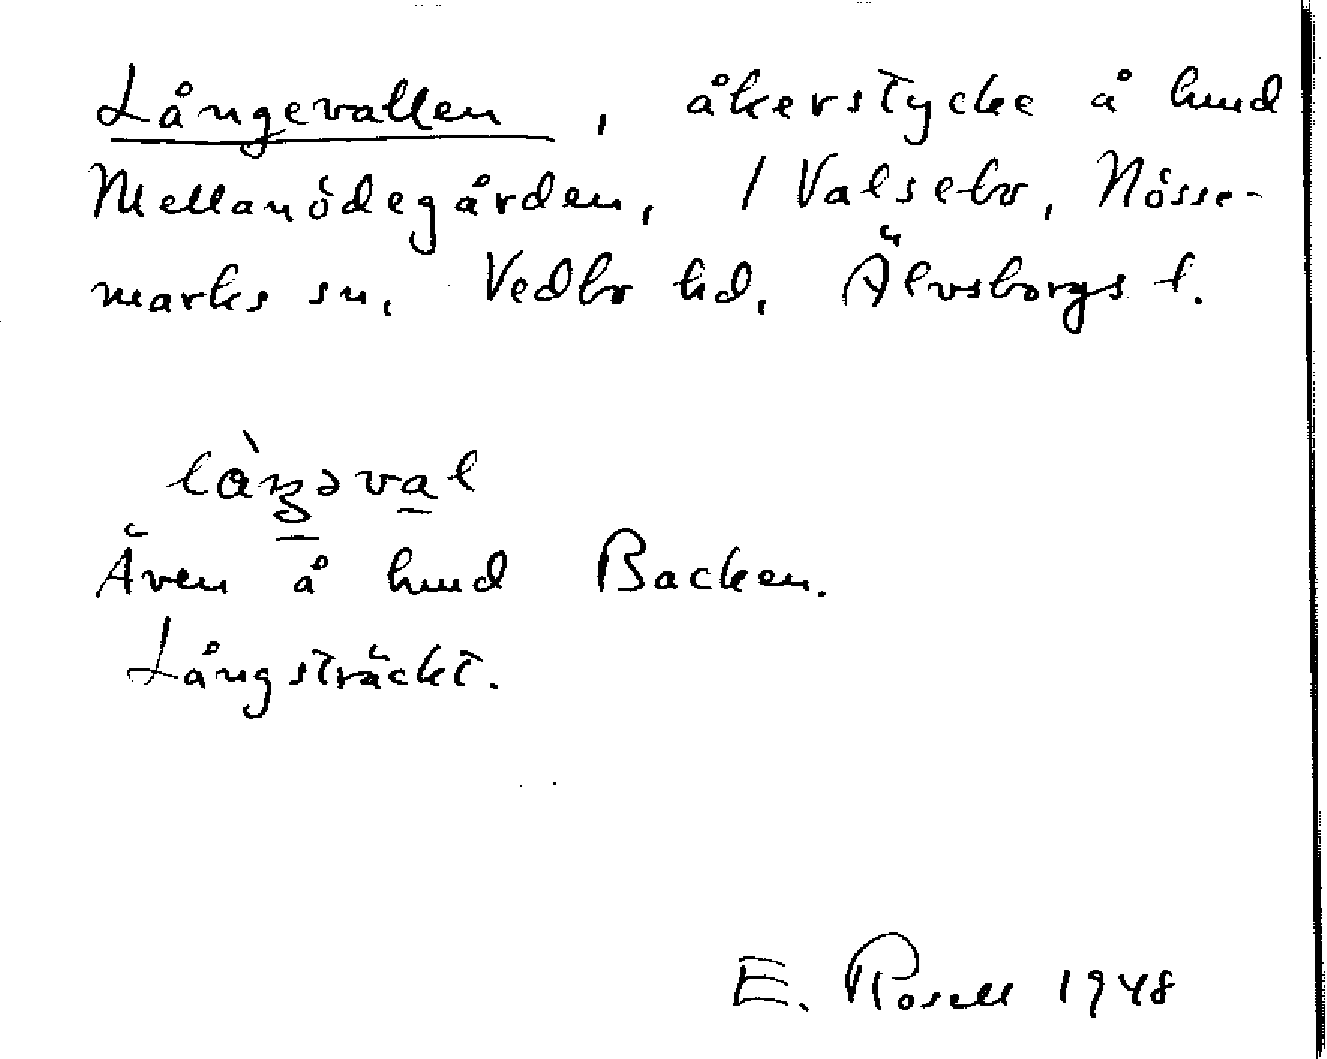 Långevallen, åkerstycke å hmd
Mellanödegården, 1 Valsebo, Nösse-
marks sn, Vedbo hd, Älvsborgs l.
Även å hmd Backen.
Långsträckt.
E. Rosell 1948